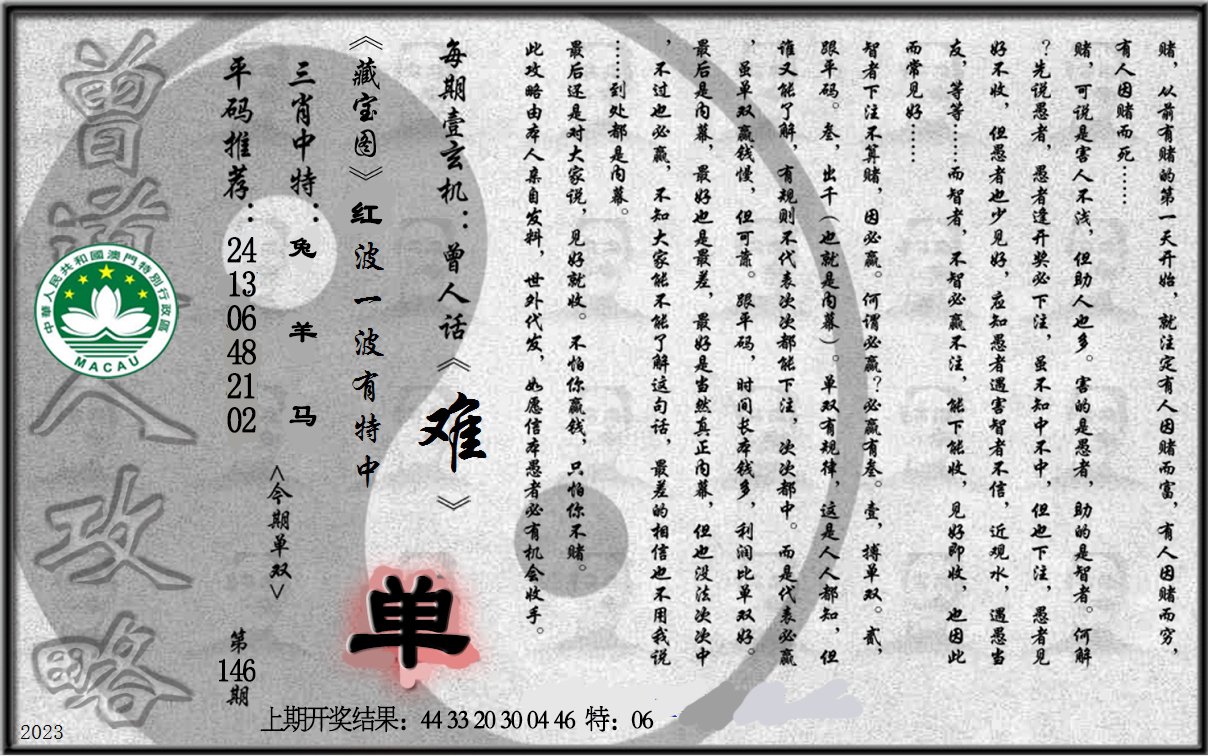 赌，从前有赌的第一天开始，就注定有人因赌而富，有人因赌而穷，
有人因赌而死……
赌，可说是害人不浅，但助人也多。害的是愚者，助的是智者。何解
？先说愚者，愚者逢开奖必下注，虽不知中不中，但也下注，愚者见
好不收，但愚者也少见好，应知愚者遇害智者不信，近观水，遇愚当
友，等等……而智者，不智必赢不注，能下能收，见好即收，也因此
而常见好……
智者下注不算赌，因必赢。何谓必赢？必赢有叁。壹，搏单双。贰，
跟平码。叁，出千（也就是内幕）。单双有规律，这是人人都知，但
谁又能了解，有规则不代表次次都能下注，次次都中。而是代表必赢
，虽单双赢钱慢，但可靠。跟平码，时间长本钱多，利润比单双好。
最后是内幕，最好也是最差，最好是当然真正内幕，但也没法次次中
，不过也必赢，不知大家能不能了解这句话，最差的相信也不用我说
……到处都是内幕。
最后还是对大家说，见好就收。不怕你赢钱，只怕你不赌。
此攻略由本人亲自发料，世外代发，如愿信本愚者必有机会收手。
每期壹玄机：曾人话《难》
《藏宝图》红波一波有特中
单
三肖中特：兔 羊 马
<今期单双>
平码推荐：24 13 06 48 21 02
第146期
曾道人攻略
中華人民共和國澳門特別行政區
MACAU
上期开奖结果：44 33 20 30 04 46 特：06
2023